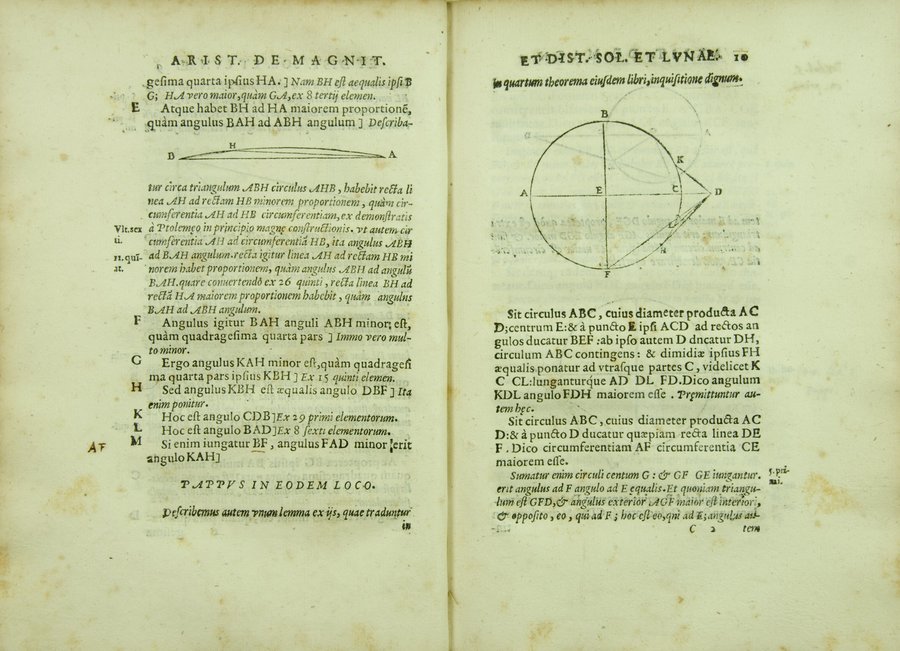 ARIST. DE MAGNIT.
gesima quarta ipsius HA. ] Nam BH est aequalis ipsi B
G; HA vero maior, quàm GA, ex 8 tertij elemen.
E Atque habet BH ad HA maiorem proportionē,
quàm angulus BAH ad ABH angulum ] Describa-
B H A
tur circa triangulum ABH circulus AHB, habebit recta li
nea AH ad rectam HB minorem proportionem, quàm cir-
cumferentia AH ad HB circumferentiam, ex demonstratis
à Ptolemęo in principio magnę constructionis. vt autem cir
Vlt. sex
ti.
cumferentia AH ad circumferentiā HB, ita angulus ABH
ad BAH angulum. recta igitur linea AH ad rectam HB mi
norem habet proportionem, quàm angulus ABH ad angulū
BAH. quare conuertendo ex 26 quinti, recta linea BH ad
rectā HA maiorem proportionem habebit, quàm angulus
BAH ad ABH angulum.
F Angulus igitur BAH anguli ABH minor; est,
quàm quadragesima quarta pars ] Immo vero mul-
to minor.
G Ergo angulus KAH minor est, quàm quadragesi
ma quarta pars ipsius KBH ] Ex 15 quinti elemen.
H Sed angulus KBH est æqualis angulo DBF ] Ita
enim ponitur.
K Hoc est angulo CDB ] Ex 29 primi elementorum.
L Hoc est angulo BAD ] Ex 8 sexti elementorum.
M Si enim iungatur BF, angulus FAD minor erit
angulo KAH ]
AF
PAPPVS IN EODEM LOCO.
Describemus autem vnum lemma ex ijs, quae traduntur
in
ET DIST. SOL. ET LVNAE. 10
in quartum theorema eiusdem libri, inquisitione dignum.
B
K
A E C D
L
H
F
Sit circulus ABC, cuius diameter producta AC
D; centrum E: & à puncto E ipsi ACD ad rectos an
gulos ducatur BEF: ab ipso autem D dncatur DH,
circulum ABC contingens: & dimidiæ ipsius FH
æqualis ponatur ad vtrasque partes C, videlicet K
C CL: Iunganturque AD DL FD. Dico angulum
KDL angulo FDH maiorem esse. Pręmittuntur au-
tem hęc.
Sit circulus ABC, cuius diameter producta AC
D: & à puncto D ducatur quæpiam recta linea DE
F. Dico circumferentiam AF circumferentia CE
maiorem esse.
Sumatur enim circuli centum G: & GF GE iungantur.
5. pri-
mi.
erit angulus ad F angulo ad E equalis. Et quoniam triangu-
lum est GFD, & angulus exterior AGF maior est interiori,
& opposito, eo, qui ad F; hoc est eo, qui ad E; angulus au-
C 2 tem